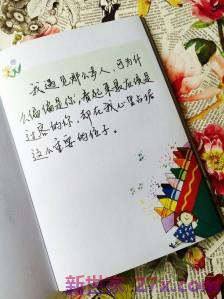 我遇见那么多人，可为什
么偏偏是你，看起来最应该是
过客的你，却在我心里占据
这么重要的位子。
新世家 27x.com